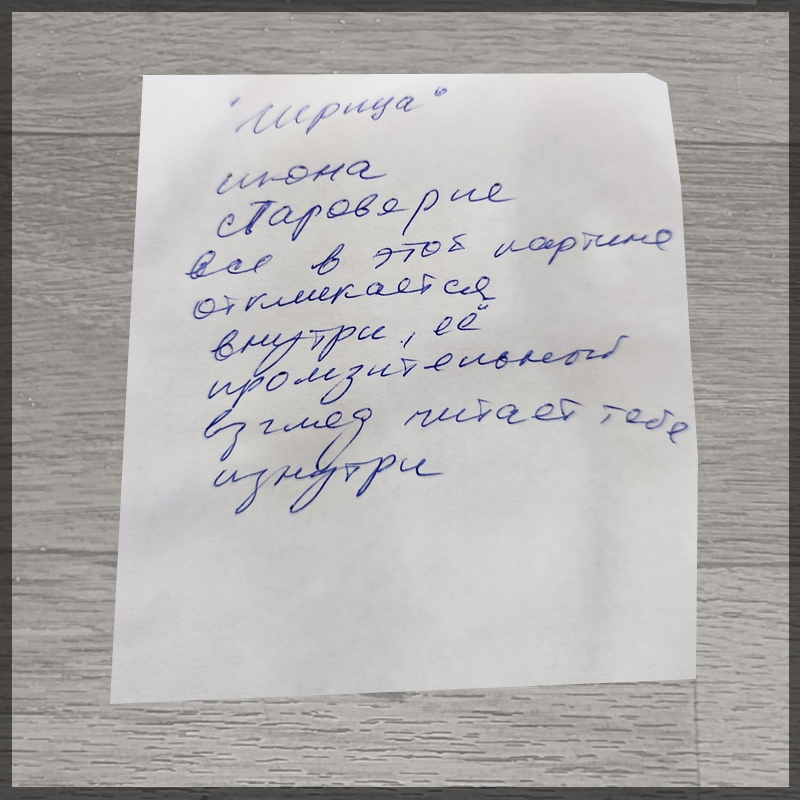 "Жрица"
икона
староверие
все в этой картине
откликается
внутри, её
промзительный
взгляд читает тебе
изнутри